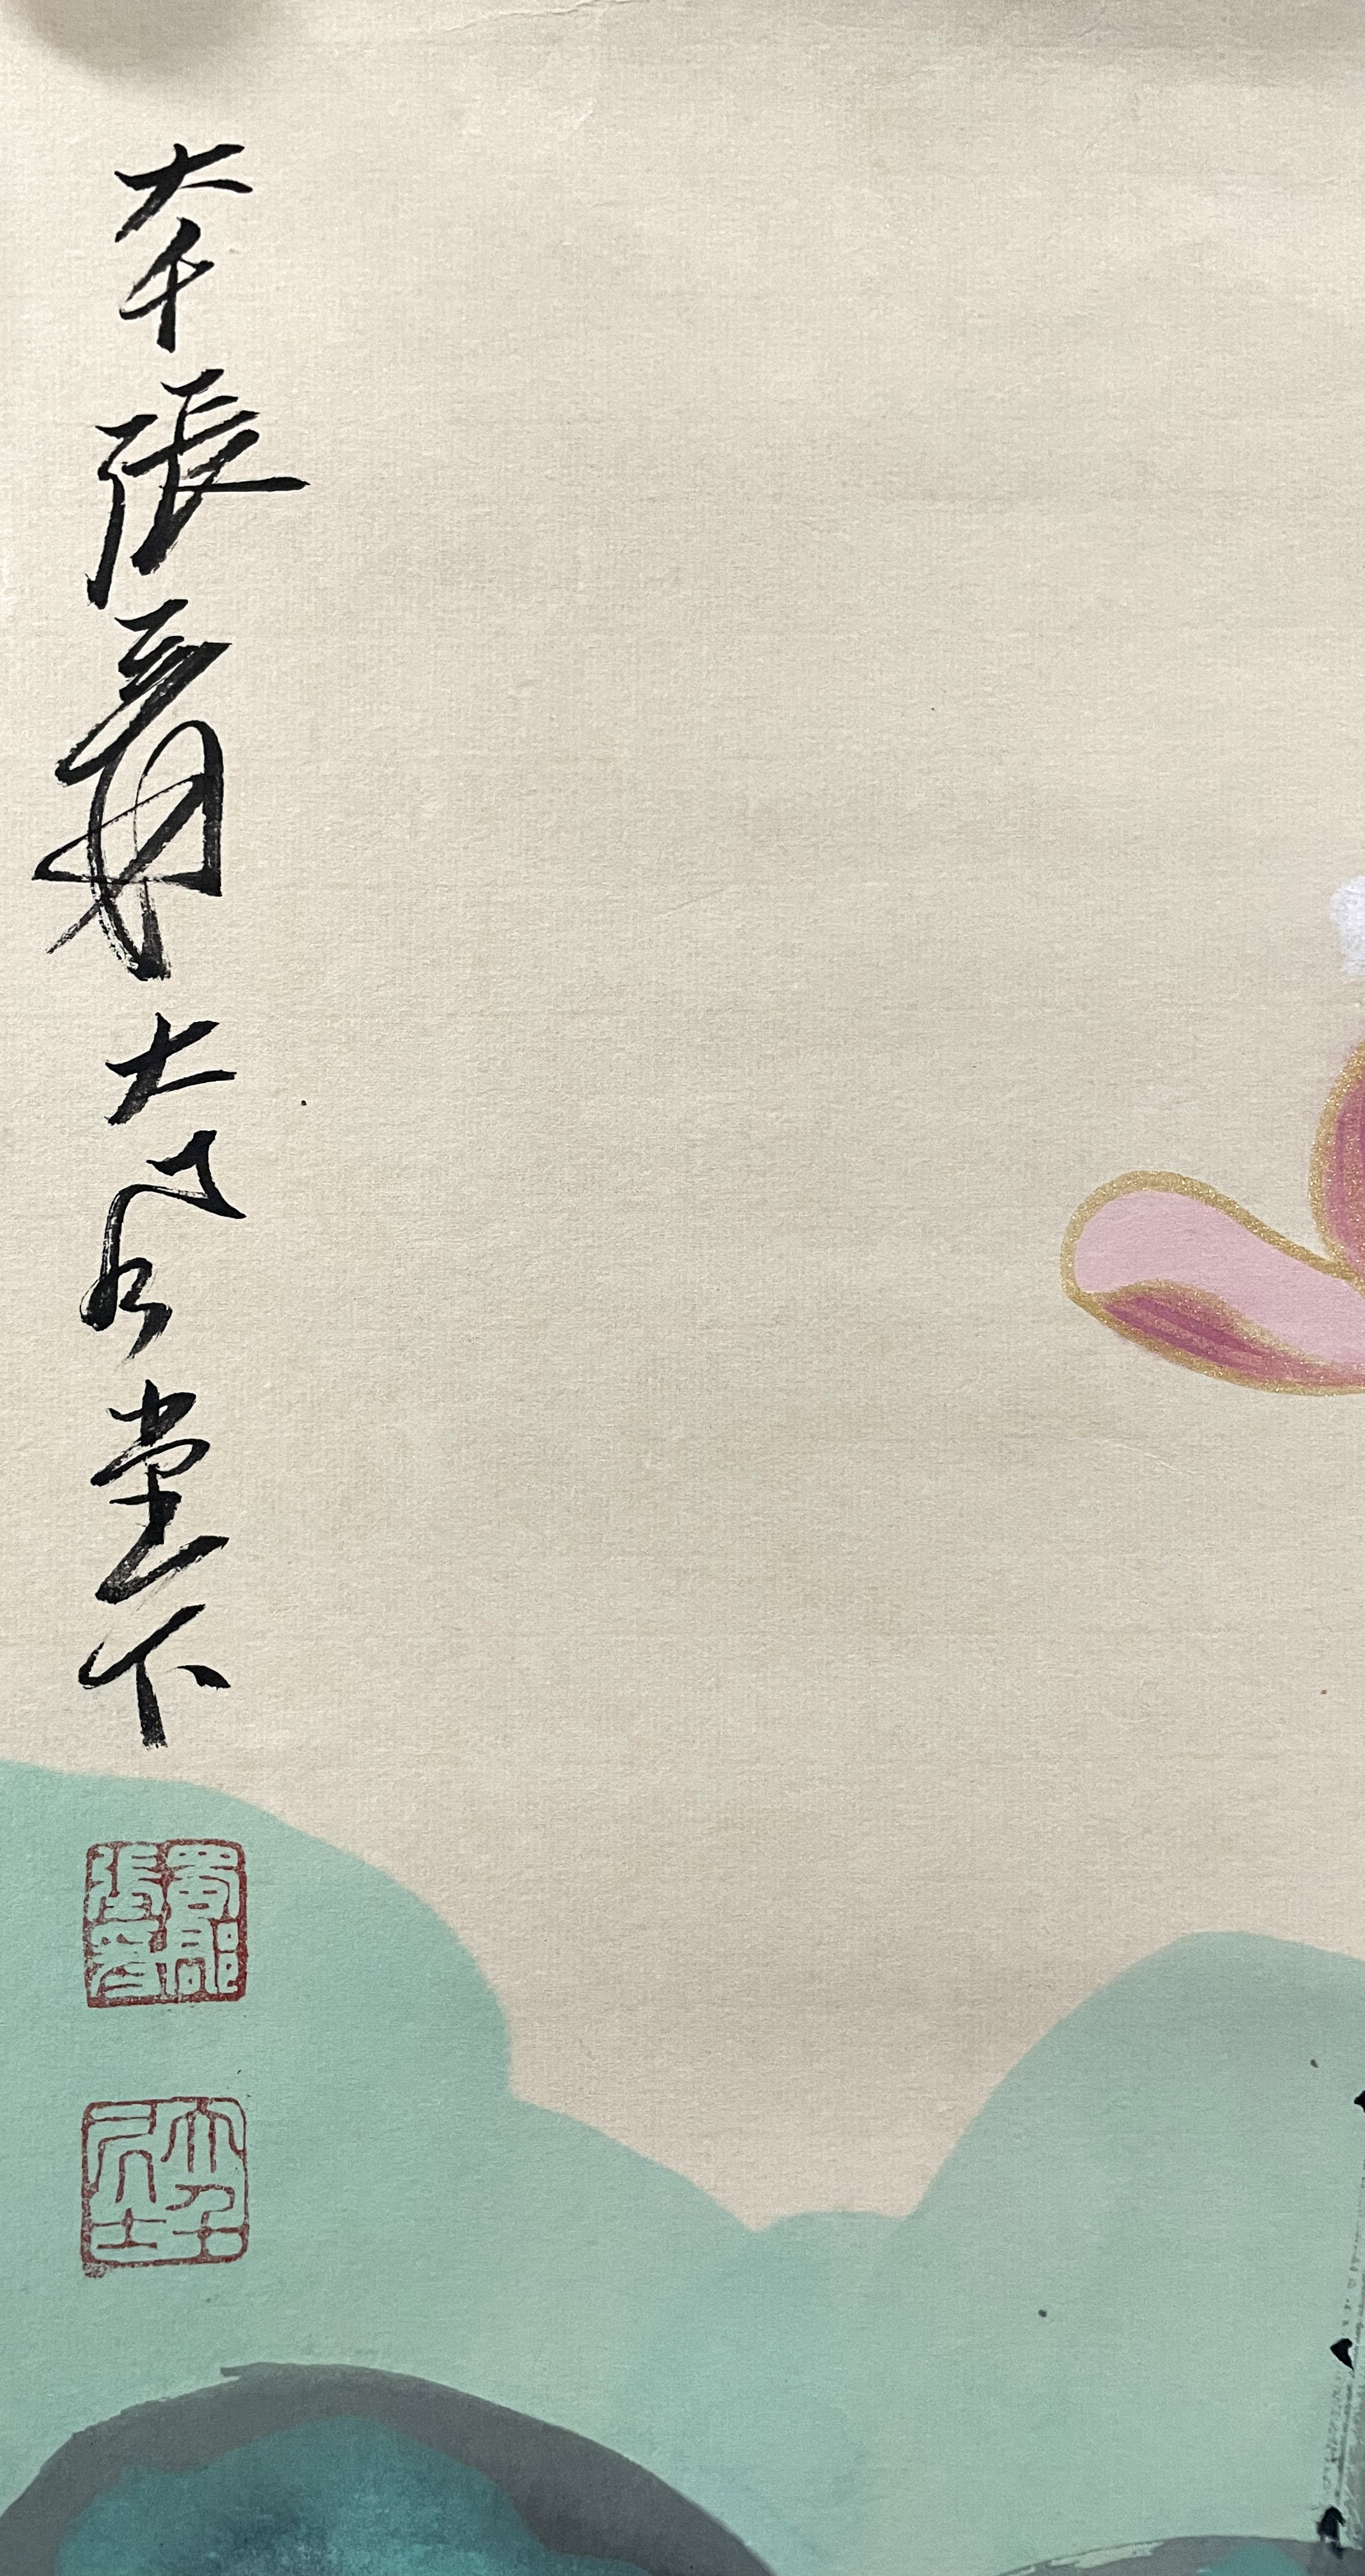 大千張爰大風堂下
蜀郡張爰
大千居士